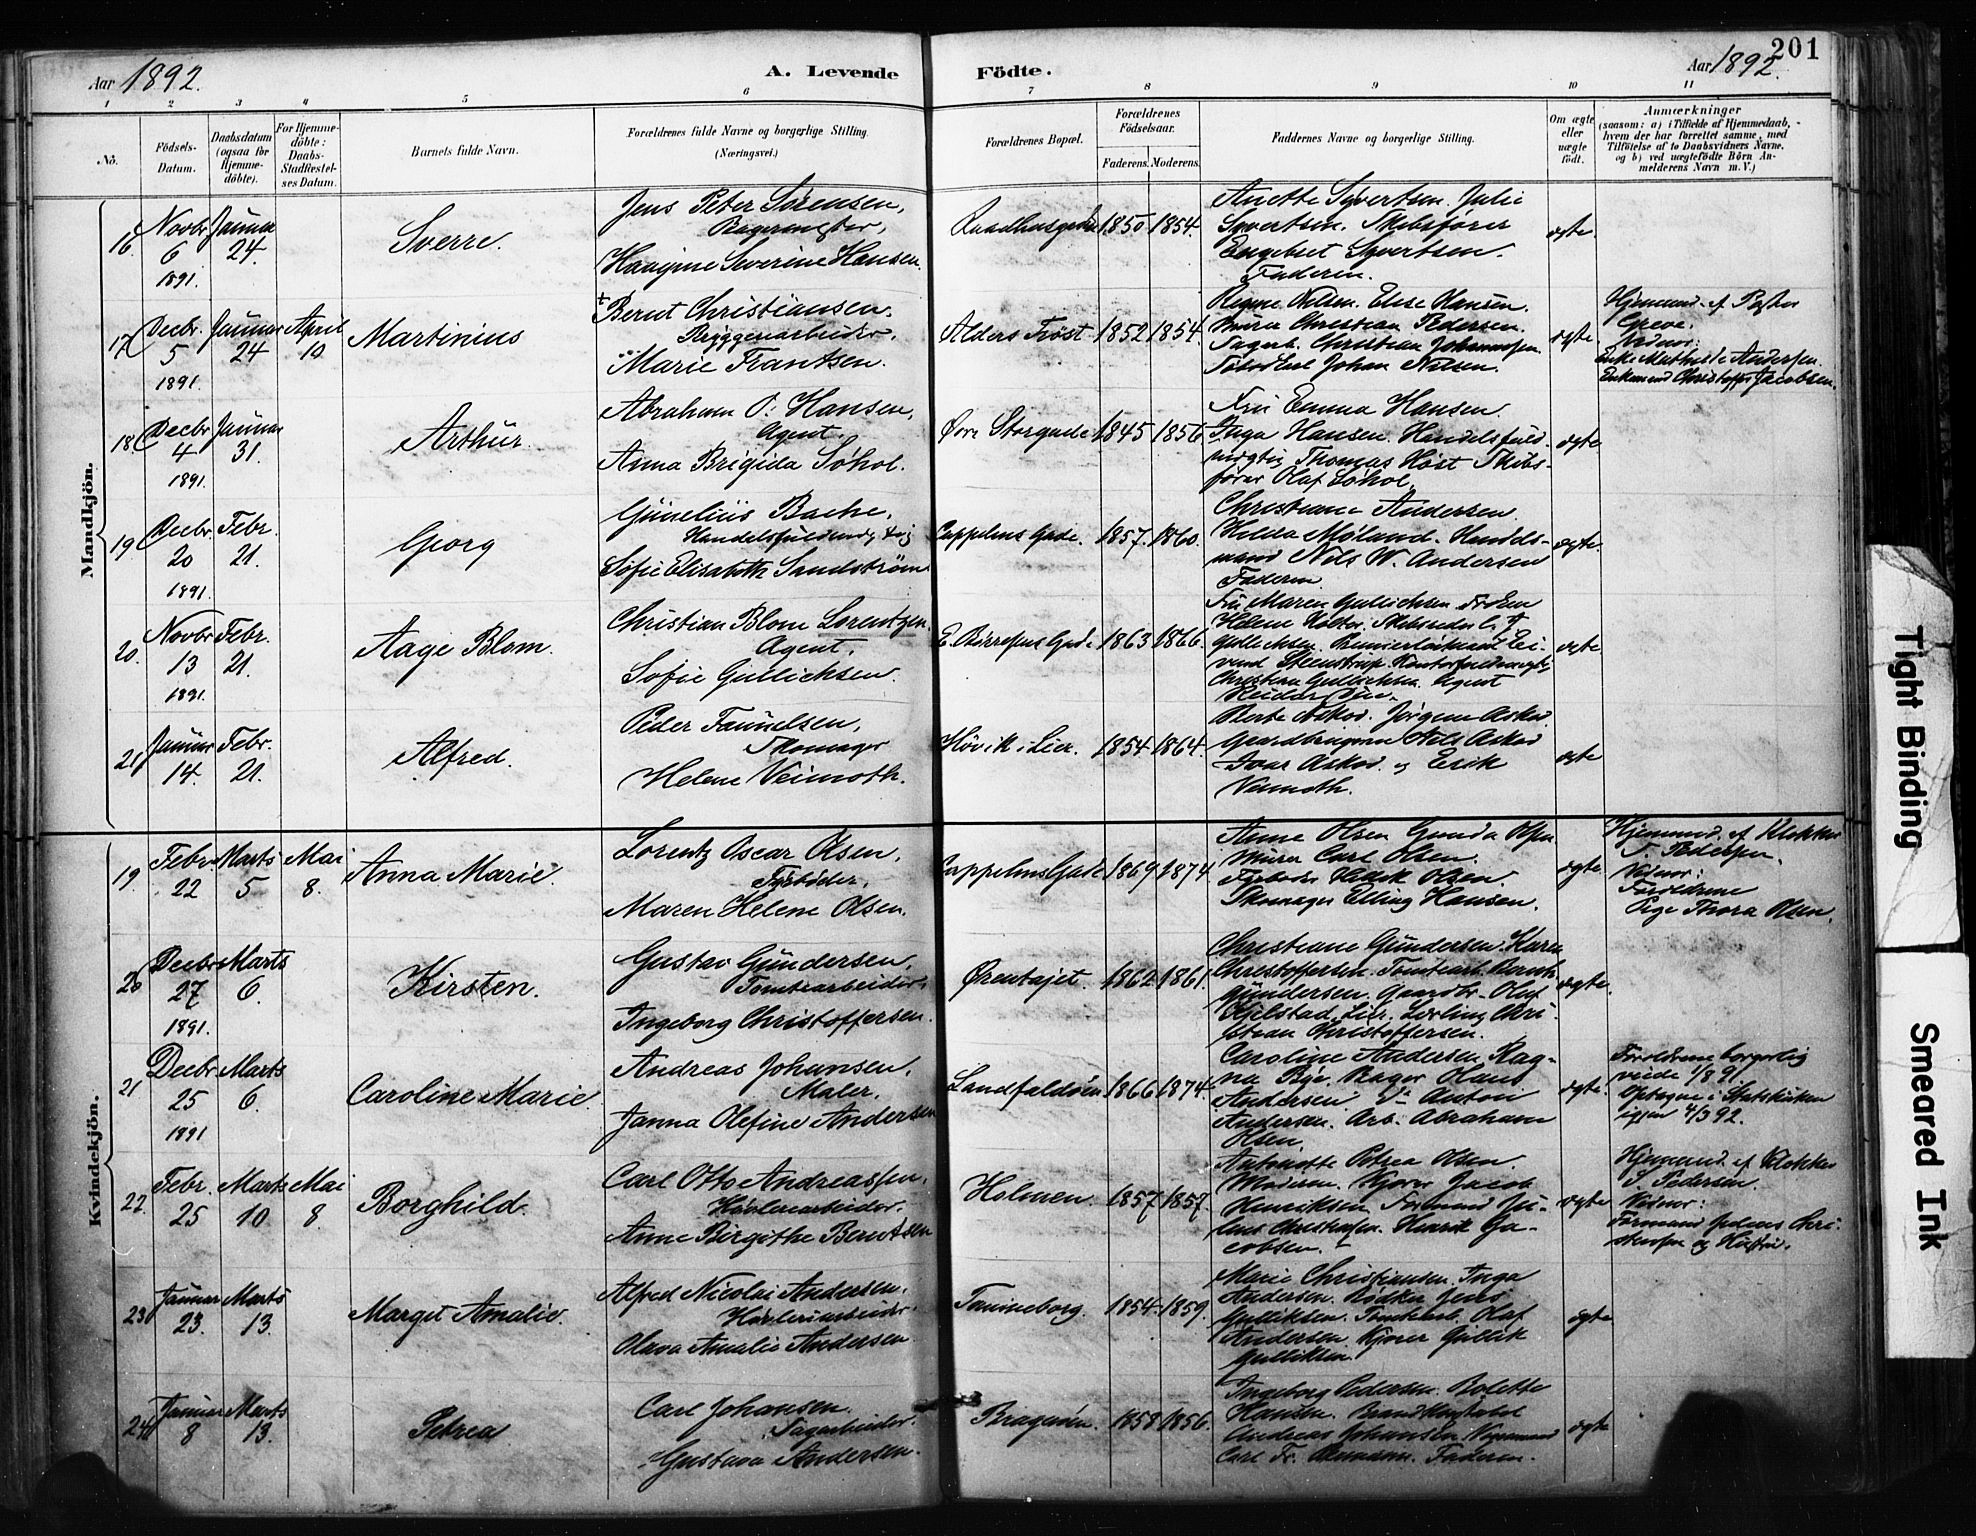 201
Aar 1892.
A. Levende Födte.
Aar 1892.
1 2 3 4 5 6 7 8 9 10 11
No.
Födsels-Datum.
Daabsdatum (ogsaa for Hjemme-döbte).
For Hjemme-döbte: Daabs-Stadfæstel-ses Datum.
Barnets fulde Navn.
Forældrenes fulde Navne og borgerlige Stilling. (Næringsvei.)
Forældrenes Bopæl.
Forældrenes Födselsaar.
Faderens. Moderens.
Faddernes Navne og borgerlige Stilling.
Om ægte eller uægte födt.
Anmærkninger
(saasom: a) i Tilfælde af Hjemmedaab,
hvem der har forrettet samme, med
Tilföielse af to Daabsvidners Navne,
og b) ved uægtefödte Börn An-
melderens Navn m. V.)
Mandkjön.
16 Novbr 6 1891. Januar 24.
Sverre.
Jens Peter Sørensen,
Bagermester,
Severine Hansen.
1850 1854.
Anette Syvertsen. Julie
Syvertsen. Skibsfører
Engebret Syvertsen.
Faderen.
ægte.
17 Decbr. 5 1891. Januar 24 April 10
Martinius
Bernt Christiansen.
Bryggeriarbeider.
Marie Frantsen.
Alders Trøst 1852 1854.
Nilsen. Elise Hansen.
Murer Christian Pedersen.
Sagarb. Christian Johannesen
Johan Nilsen.
ægte.
Hjemmed. af Pastor
Greve.
Vidner:
Enke Mathilde Andersen.
Enkemand Christoffer Jacobsen.
18 Decbr 4 1891. Januar 31.
Arthur.
Abraham O. Hansen,
Agent.
Anna Brigida Søhol.
Øvre Storgade 1845 1856
Fru Emma Hansen.
Inga Hansen. Handelsfuld-
mægtig Thomas Høst Skibs-
fører Olaf Søhol.
ægte
19 Decbr 20 1891. Febr. 21.
Georg
Gunelius Bache,
Handelsfuldmægtig
Sofie Elisabeth Sandstrøm
Cappelens Gade. 1857. 1860.
Christiane Andersen
Helda Møland. Handels-
mand Nils W. Andersen
Faderen
ægte.
20. Novbr 13 1891. Febr. 21.
Aage Blom.
Christian Blom Lorentzen.
Agent.
Sofie Gullichsen.
1863 1866.
Fru Maren Gullichsen. Frøken
Helene
Gullichsen. Premierløitnant Ei-
vind Steenstrup. Kontorfuldmægtig
Christian Gullichsen. Agent
Reidar
ægte
21 Januar 14. Febr. 21.
Alfred.
Peder
Skomager
Helene Veimoth.
Høvik i Lier. 1854 1864.
Berte Askov. Jørgen Askov.
Gaardbrugerne Nils Askov
Ivar Askov. og Erik
Veimoth.
ægte
Kvindekjön.
19 Febr. 22 Marts 5 Mai 8.
Anna Marie.
Lorentz Oscar Olsen.
Fyrbøder.
Maren Helene Olsen.
Cappelens Gade 1869 1874
Anne Olsen Gunda Olsen
Murer Carl Olsen.
Fyrbøder Olsen.
Skomager Elling Hansen.
ægte.
Hjemmed. af Klokker
Pedersen.
Vidner:
Forældrene
Pige Thora Olsen.
20 Decbr 27 1891. Marts 6.
Kirsten.
Gustav Gundersen,
Tomtearbeider.
Ingeborg Christoffersen.
Ørentajet. 1862 1861.
Christiane Gundersen. Karen
Christoffersen. Tomtearb. Bernh.
Gundersen. Gaardbr. Olaf
Kjelstad, Lier. Lærling Chri-
stian Christoffersen.
ægte.
21 Decbr 25 1891 Marts 6.
Caroline Marie.
Andreas Johansen,
Maler.
Janna Olefine Andersen
Landfaldøen 1866 1874.
Caroline Andersen. Rag-
na Bye. Bager Hans
Andersen. Do Anton
Andersen. Arb. Abraham
Olsen.
ægte.
Forældrene borgerlig
viede 1/8 91.
Optagne i Statskirken
igjen 4/3 92.
22. Febr. 25 Marts 10 Mai 8
Borghild.
Carl Otto Andreassen,
Høvleriarbeider.
Anne Birgithe Berntsen
Holmen. 1857 1857.
Antonette Petrea Olsen.
Moderen. Kjører Jacob
Henriksen. Formand Ju-
lius Christensen. Henrik Ja-
cobsen.
ægte
Hjemmed. af Klokker
Pedersen.
Vidner:
Formand Julius Chri-
stensen og Hustru.
23 Januar 23. Marts 13.
Margit Amalie.
Alfred Nicolai Andersen.
Høvleriarbeider.
Olava Amalie Andersen
1854. 1859.
Marie Christiansen. Inga
Andersen. Bødker Jens
Gulliksen. Tomtearb. Olaf
Andersen. Kjører Gullik
Gulliksen.
ægte
24 Januar 8 Marts 13.
Petrea
Carl Johansen.
Sagarbeider.
Gustava Andersen.
Bragerøen. 1858 1856.
Ingeborg Pedersen. Bolette
Hansen. Brandkonstabel
Andreas Johansen.
Carl Fr. Faderen.
ægte
Tight Binding
Smeared Ink